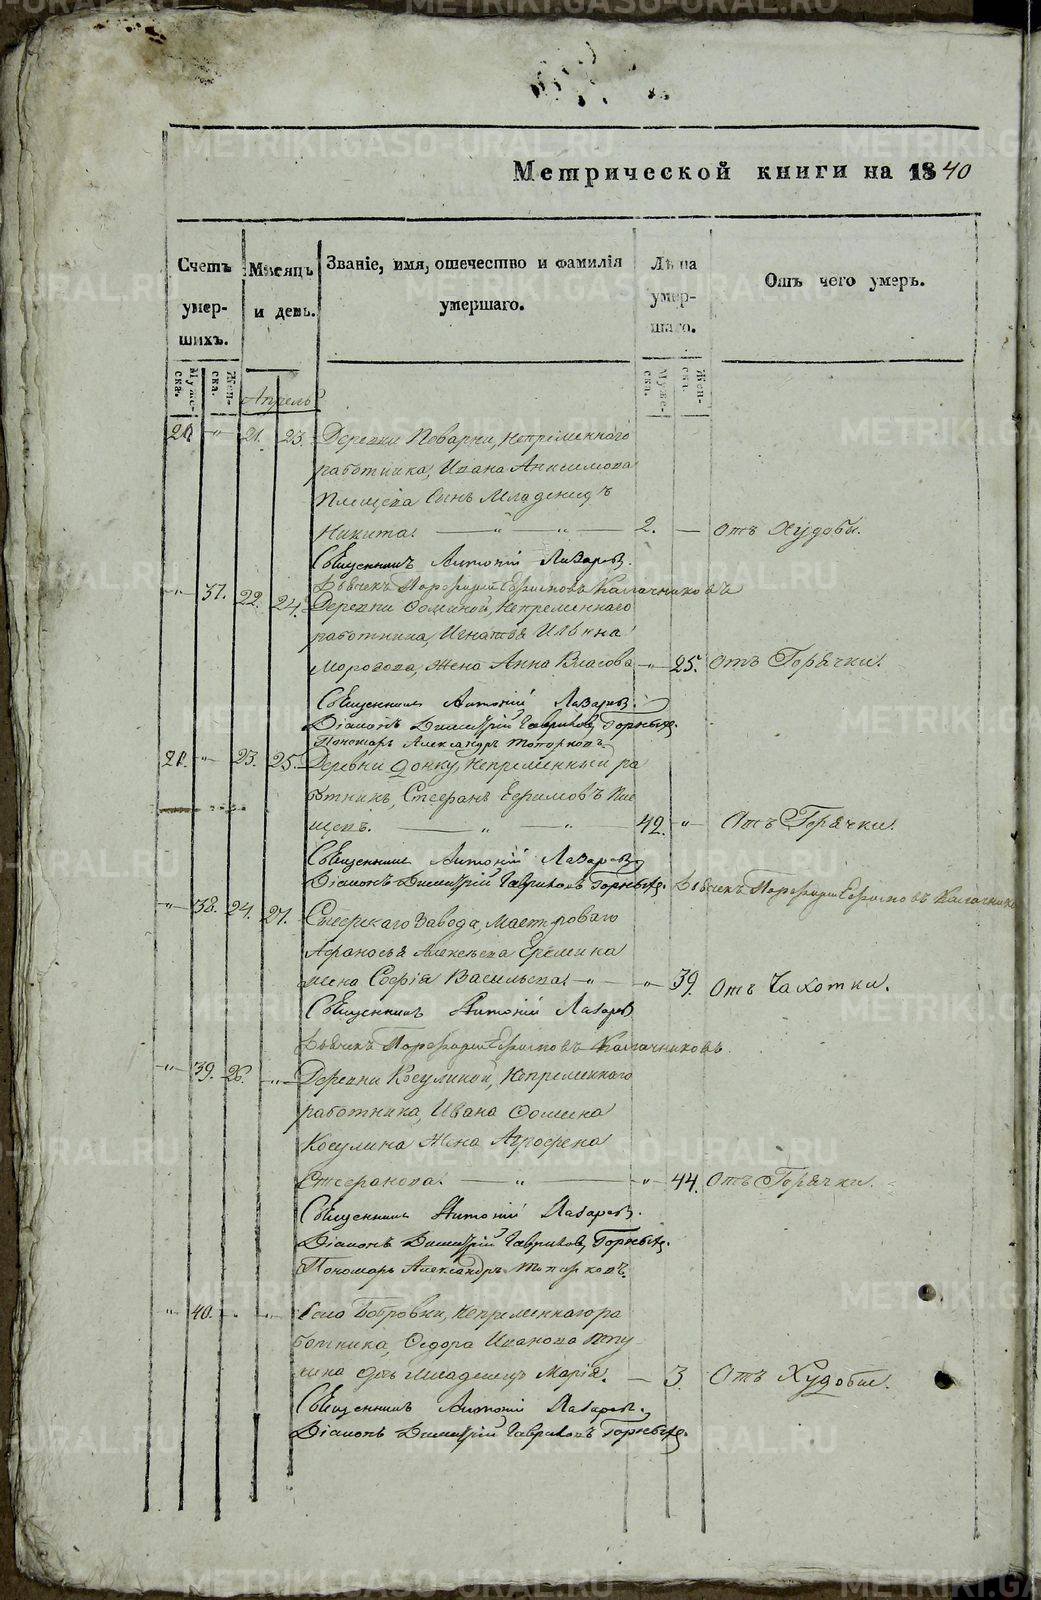 Метрической книги на 1840
Счетъ умер-шихъ.
Мѣсяцъ и день.
Званіе, имя, отечество и фамилія умершаго.
Лѣта умер-шаго.
Отъ чего умеръ.
Муже-ска.
Жен-ска.
Апрель
Муже-ска.
Жен-ска.
20 " 21. 23. Деревни Поварни, Непременнаго
работника, Ивана Анисимова
Плещева Сынъ Младенецъ
Никита. — " — " — 2. — отъ Худобы.
Священникъ Антоній Лазаревъ.
Дьячекъ Порфирій Ефимовъ Калачниковъ
" 37. 22. 24. Деревни Фоминой, Непременнаго
работника, Игнатья Ильина
Морозова, Жена Анна Власова — " — 25. отъ Горячки.
Священникъ Антоній Лазаревъ.
Діаконъ Димитрій Гавриловъ Горныхъ.
Пономарь Александръ Топорковъ
21. " 23. 25. Деревни Непременный ра
ботникъ, Стефанъ Ефимовъ Пле
щевъ. — " — " — 42. " Отъ Горячки.
Священникъ Антоній Лазаревъ
Діаконъ Димитрій Гавриловъ Горныхъ. Дьячекъ Порфирій Ефимовъ Калачнико
" 38. 24. 27. Сысерскаго Завода, Мастероваго
Афанасья Алексѣева Еремина
жена Софія Васильева. — " — " — 39. Отъ Чахотки.
Священникъ Антоній Лазаревъ
Дьячекъ Порфирій Ефимовъ Калачниковъ.
" 39. 26. " Деревни Косулиной, Непременнаго
работника, Ивана Фомина
Косулина Жена Агрофена
Стефанова. — " — " — 44. отъ Горячки.
Священникъ Антоній Лазаревъ.
Діаконъ Димитрій Гавриловъ Горныхъ.
Пономарь Александръ Топорковъ.
" 40. " " Села Бобровки, Непременнаго ра
ботника, Федора Иванова
дочь младенецъ Марія. — 3. Отъ Худобы.
Священникъ Антоній Лазаревъ.
Діаконъ Димитрій Гавриловъ Горныхъ.
METRIKI.GASO-URAL.RU